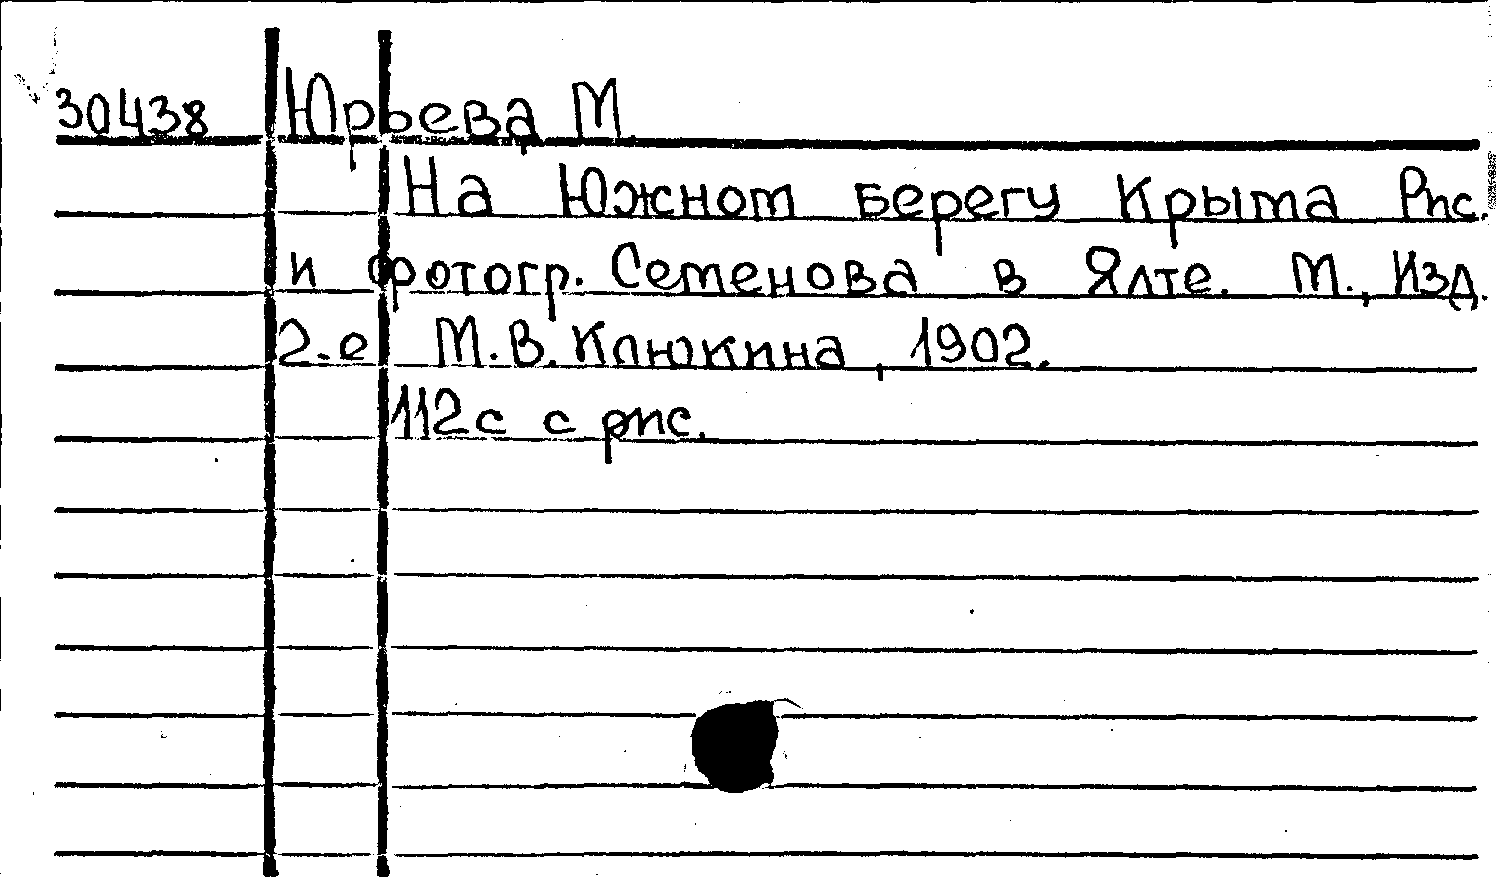 30438 Юрьева М.
На Южном берегу Крыма Рис.
и фотогр. Семенова в Ялте. М., Изд.
2-е М.В. Клюкина, 1902.
112с с рис.